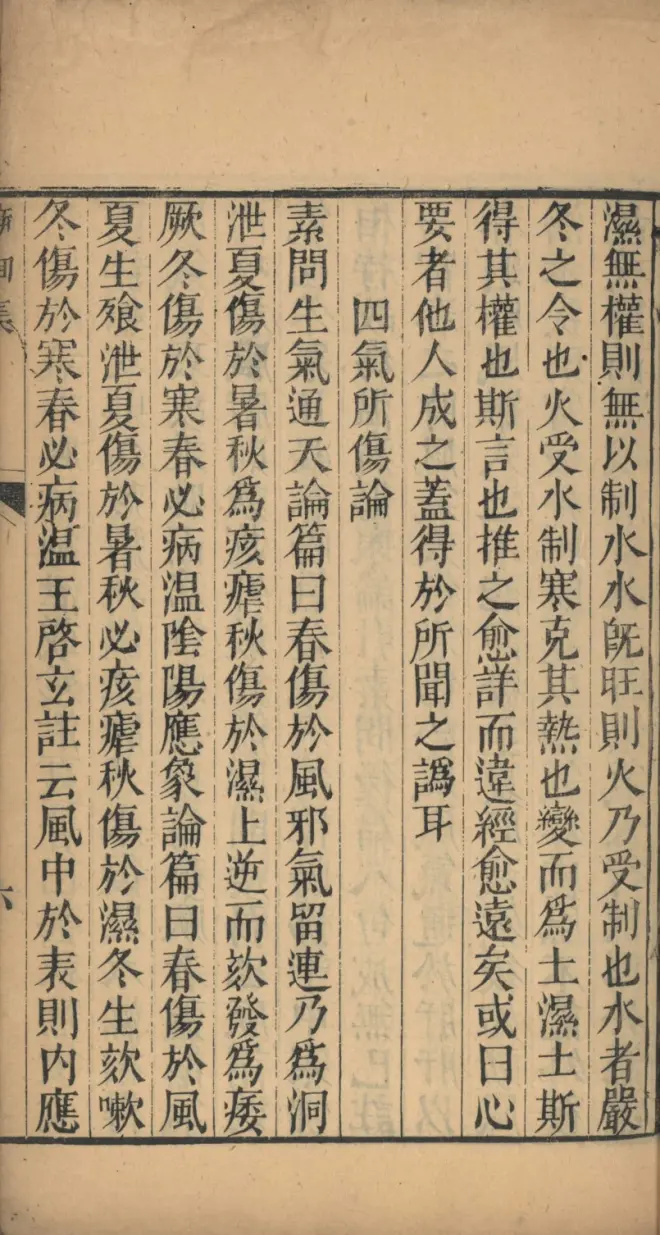 濕無權則無以制水水旣旺則火乃受制也水者嚴
冬之令也火受水制寒克其熱也變而爲土濕土斯
得其權也斯言也推之愈詳而違經愈遠矣或曰心
要者他人成之蓋得於所聞之譌耳
四氣所傷論
素問生氣通天論篇曰春傷於風邪氣留連乃爲洞
泄夏傷於暑秋爲痎瘧秋傷於濕上逆而欬發爲痿
厥冬傷於寒春必病温陰陽應象論篇曰春傷於風
夏生飱泄夏傷於暑秋必痎瘧秋傷於濕冬生欬嗽
冬傷於寒春必病温王啓玄註云風中於表則内應
集
六